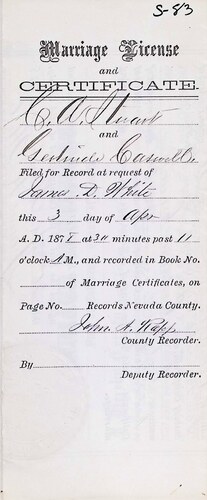 S-83
Marriage License
and
CERTIFICATE.
C. A. Stuart
and
Gertrude Caswell.
Filed for Record at request of
James D. White
this 3 day of Apr
A. D. 187 at 30 minutes past 11
o'clock A M., and recorded in Book No.
of Marriage Certificates, on
Page No. Records Nevada County.
John A. Rapp
County Recorder.
By
Deputy Recorder.